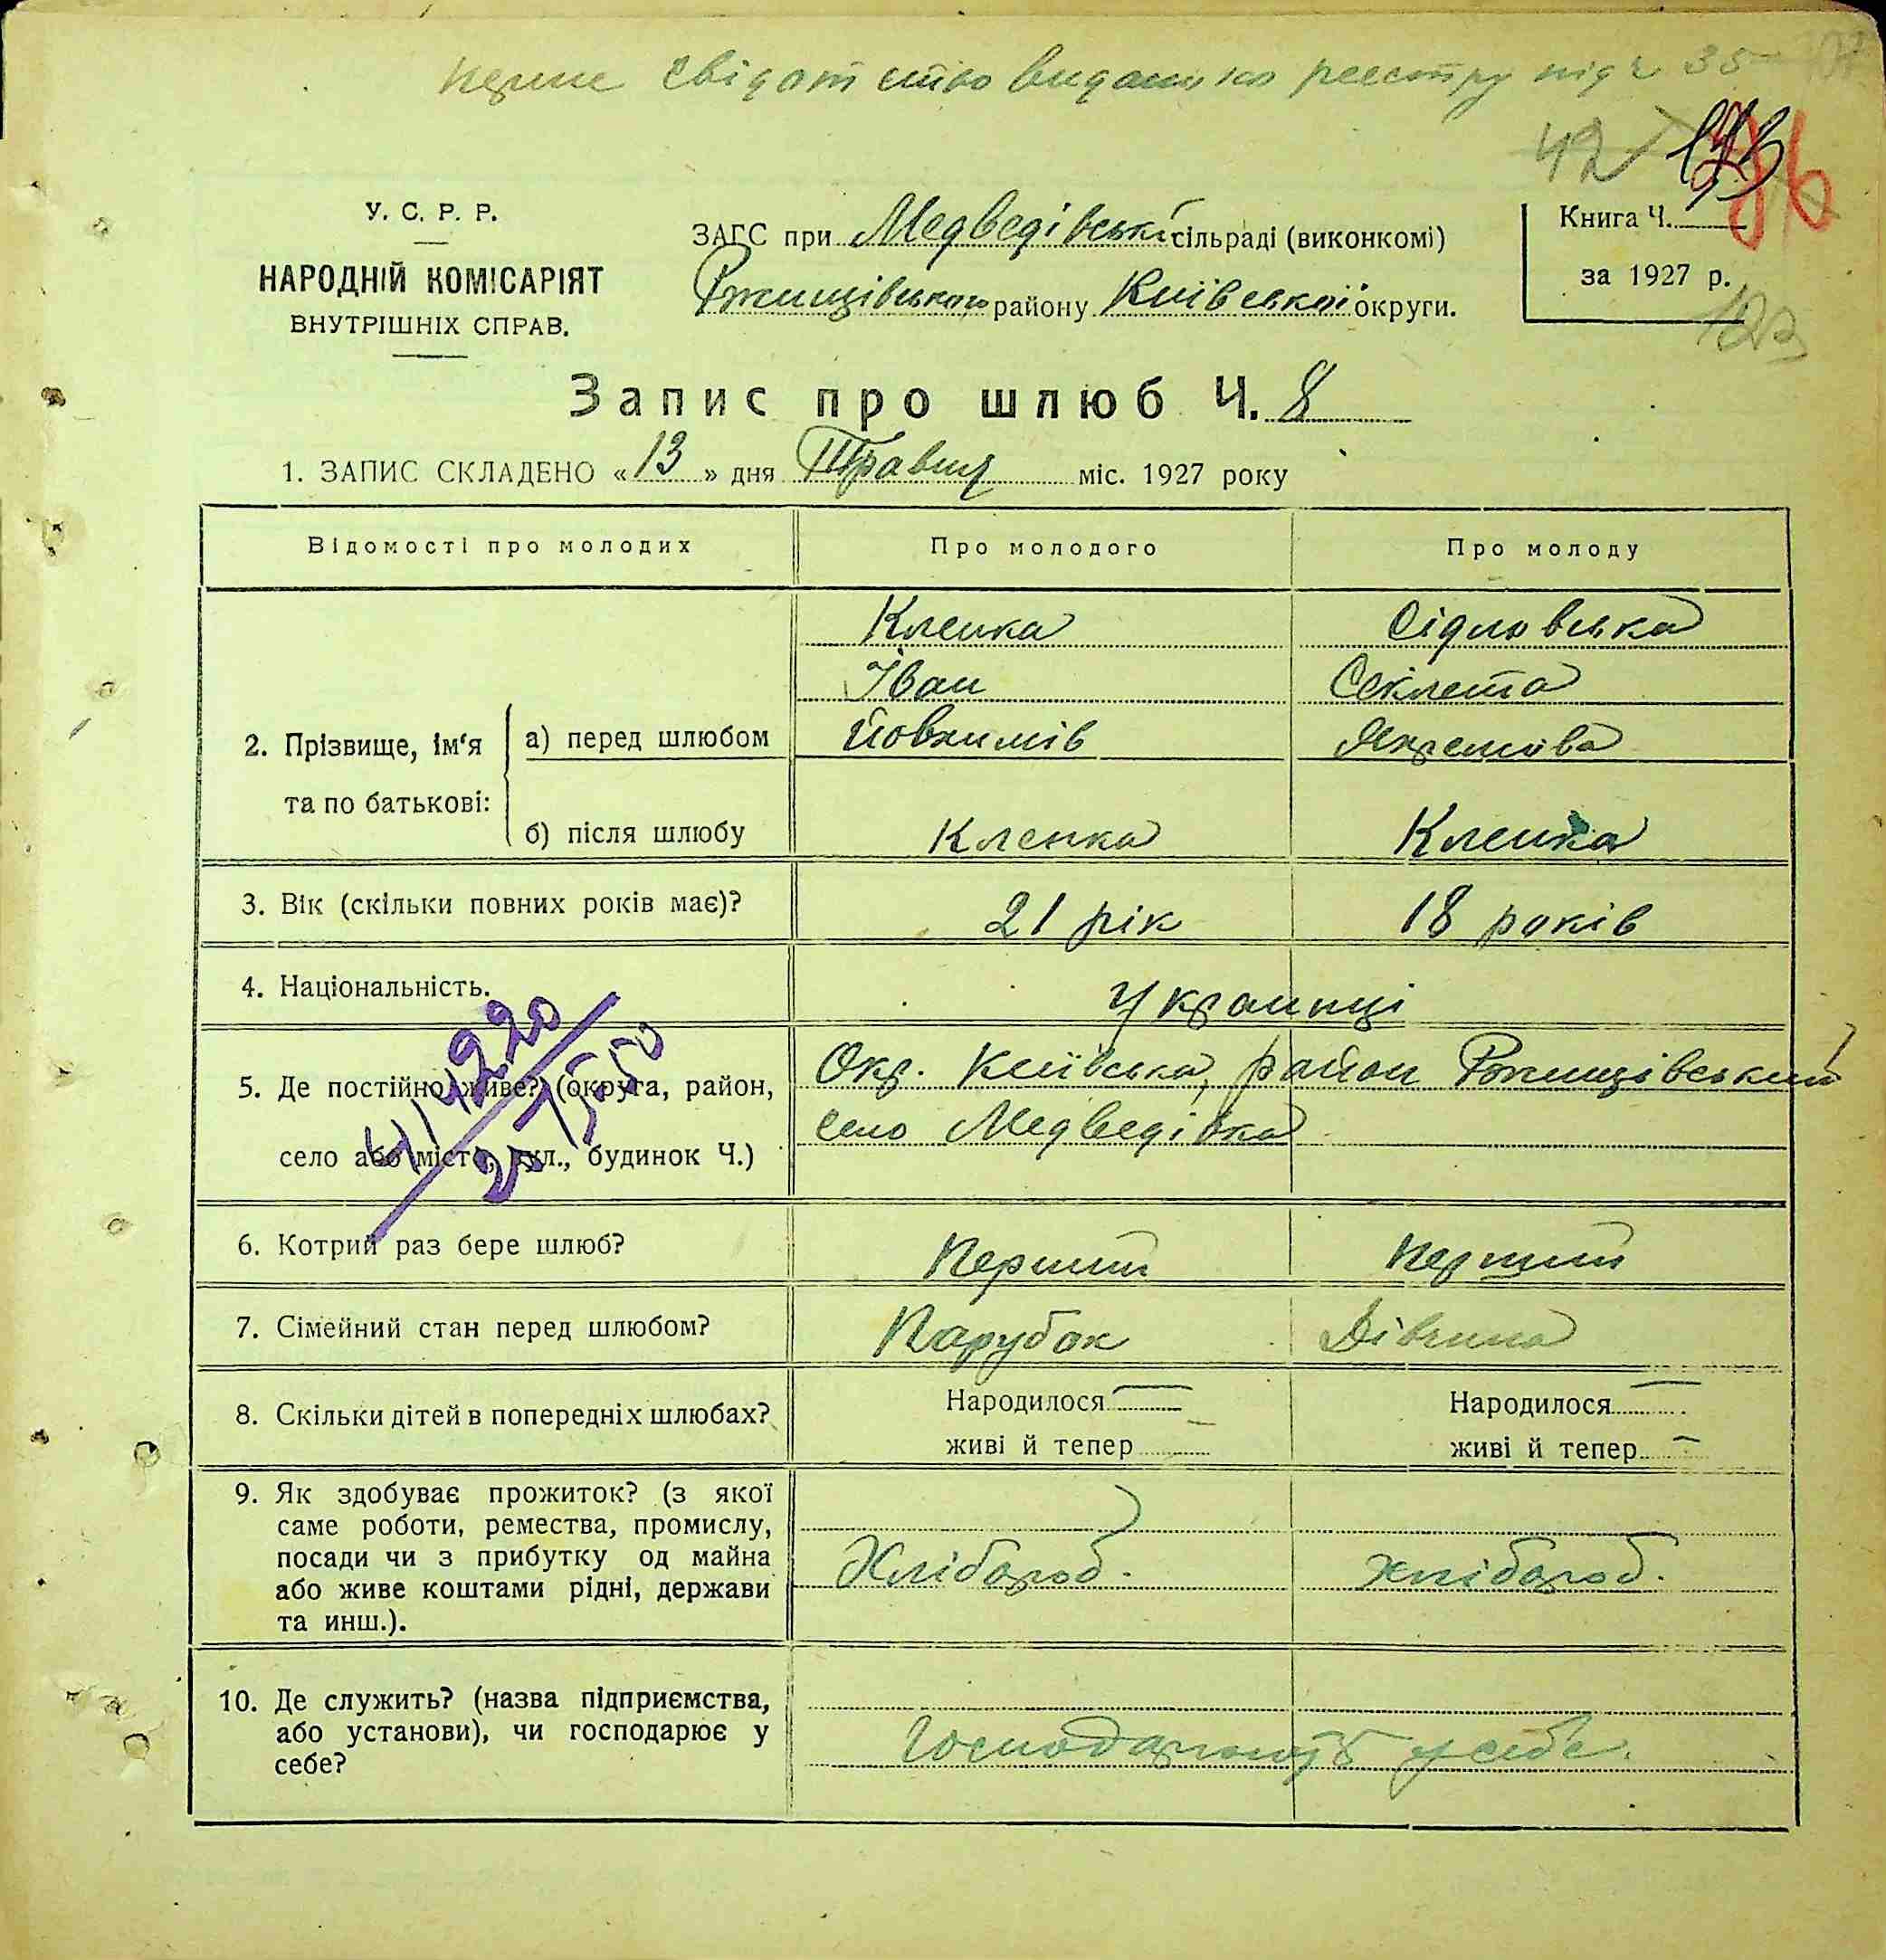 свідотство видано по реєстру під ч 35
42
У. С. Р. Р.
НАРОДНІЙ КОМІСАРІЯТ
ВНУТРІШНІХ СПРАВ.
ЗАГС при Медведівські сільраді (виконкомі)
Ржищівського району Київської округи.
Книга Ч.
за 1927 р.
123
Запис про шлюб Ч. 8
1. ЗАПИС СКЛАДЕНО «13» дня Травня міс. 1927 року
Відомості про молодих Про молодого Про молоду
2. Прізвище, ім'я та по батькові:
а) перед шлюбом
Клепка Сідловська
Іван Секлета
Йовхимів Яхремова
б) після шлюбу Клепка Клепка
3. Вік (скільки повних років має)? 21 рік 18 років
4. Національність. Українці
5. Де постійно живе? (округа, район, Окр. Київська, район Ржищівський
село або місто, вул., будинок Ч.) село Медведівка
6. Котрий раз бере шлюб? Перший Перший
7. Сімейний стан перед шлюбом? Парубок Дівчина
8. Скільки дітей в попередніх шлюбах? Народилося — Народилося —
живі й тепер — живі й тепер —
9. Як здобуває прожиток? (з якої
саме роботи, ремества, промислу,
посади чи з прибутку од майна Хлібороб. Хлібороб.
або живе коштами рідні, держави
та инш.).
10. Де служить? (назва підприємства,
або установи), чи господарює у Господарюють у себе.
себе?